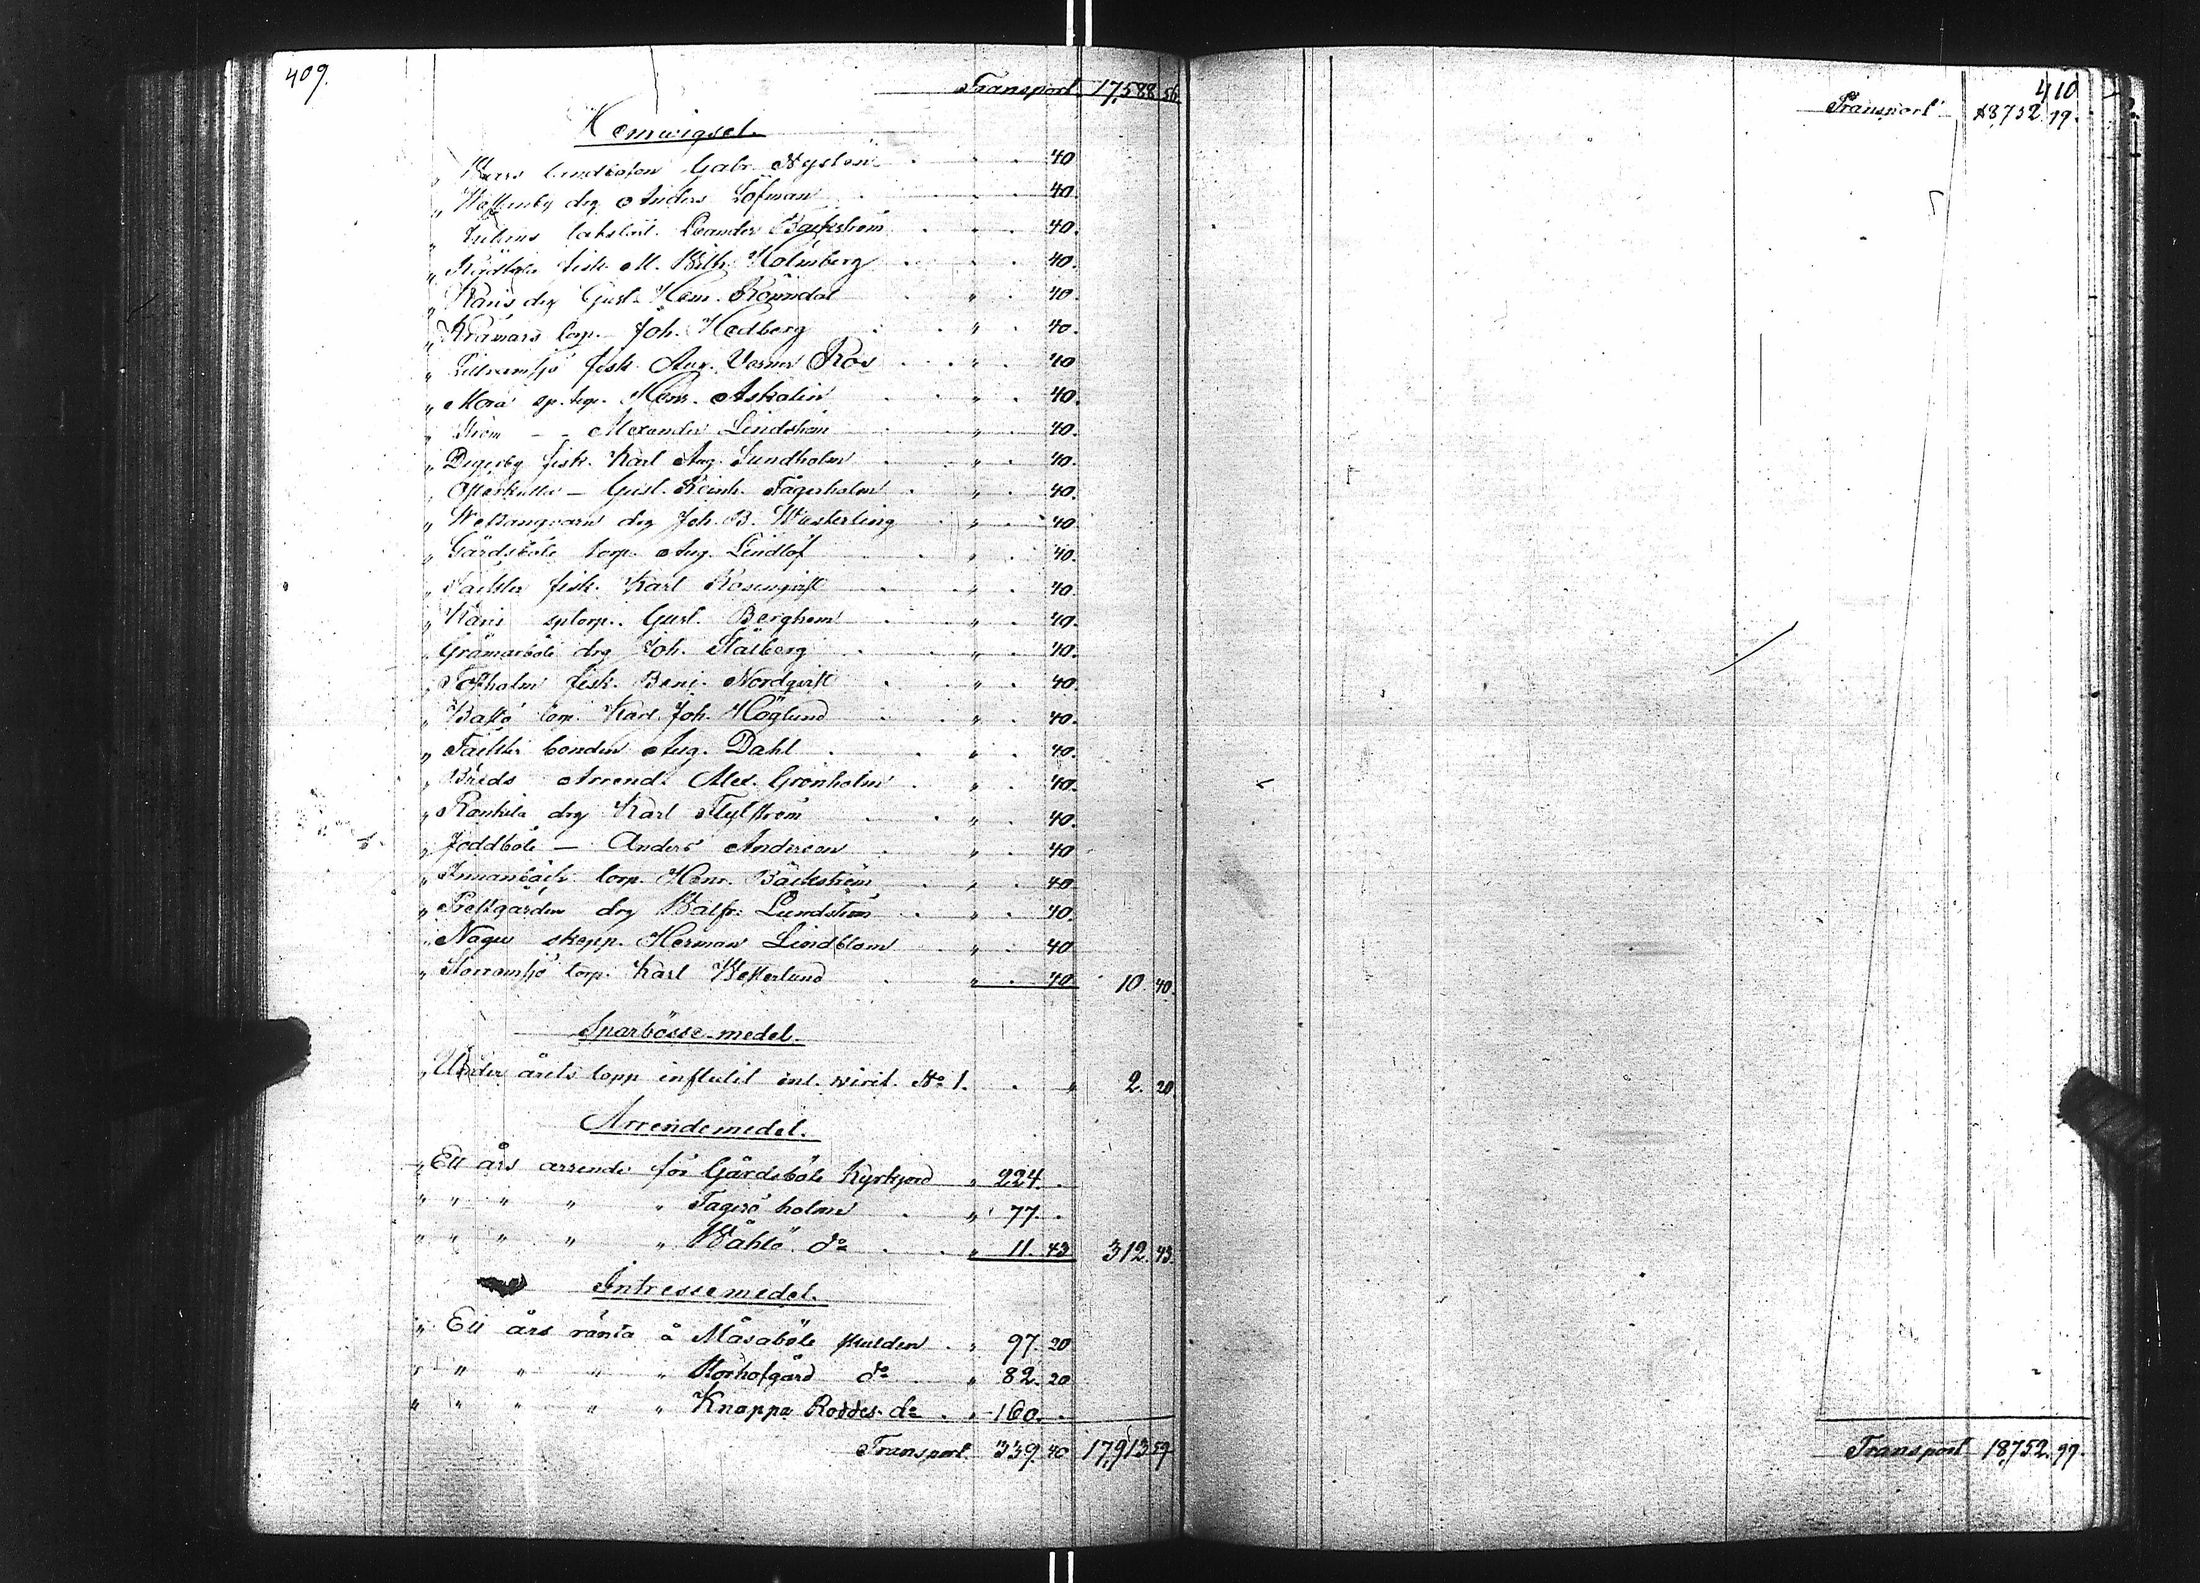 409.
Transport 17,588 56
Hemvigsel.
„ Gabr. Nystén . . . 40
„ drg Anders Löfman . . 40.
„ Leander Bäckström . . . 40.
„ fisk. M. Vilh. Holmberg . . . 40.
„ Räns drg Gust. Hem. Rönndal . „ . 40.
„ Krämars torp. Joh. Hedberg . „ . 40.
„ Lillramsjö fisk. Aug. Verner Ros . . „ . 40
„ Mora sp. torp. Henr. Askolin . „ . 40.
„ Ström — Alexander Lindström . „ . 40.
„ Degerby fisk. Karl Aug. Sundholm . „ . 40.
„ — Gust. Reinh. Fagerholm . „ . 40.
„ drg Joh. B. Westerling . „ . 40
„ Gårdsböle torp. Aug. Lindlöf . „ . 40.
„ fisk. Karl Rosenqvist . „ . 40.
„ sptorp. Gust. Berghem . „ . 40.
„ Gråmarböle drg Joh. Stålberg . . „ . 40.
„ Tofholm fisk. Benj. Nordqvist . „ . 40.
„ Bastö torp. Karl Joh. Höglund . „ . 40.
„ bonden Aug. Dahl . „ . 40.
„ Breds Arrend. Alex. Grönholm . „ . 40.
„ Rankila drg Karl Flyktström . „ . 40.
„ Joddböle — Anders Anderson . „ . 40
„ Innanbäck torp. Henr. Bäckström . „ . 40
„ Prestgården drg Valfr. Lundström . „ . 40.
„ Nagu skepp. Herman Lindblom . „ . 40
„ Storramsjö torp. Karl Westerlund . „ . 40 10. 40.
Sparbösse-medel.
„ Under årets lopp influtit enl. verif. No 1. . „ 2. 20.
Arrendemedel.
„ Ett års arrende för Gårdsböle Kyrkjord „ 224. .
„ „ „ „ „ Fagerö holme . „ 77. .
„ „ „ „ „ Wåhlö do . . „ 11. 43 312. 43.
Intressemedel.
„ Ett års ränta å Måsaböle skulden . „ 97. 20
„ „ „ „ „ Storhofgård do „ 82. 20
„ „ „ „ „ Knappa Roddes do . „ 160. .
Transport. 339. 40 17,913 59
410
Transport 18,752. 99.
Transport 18,752. 99.